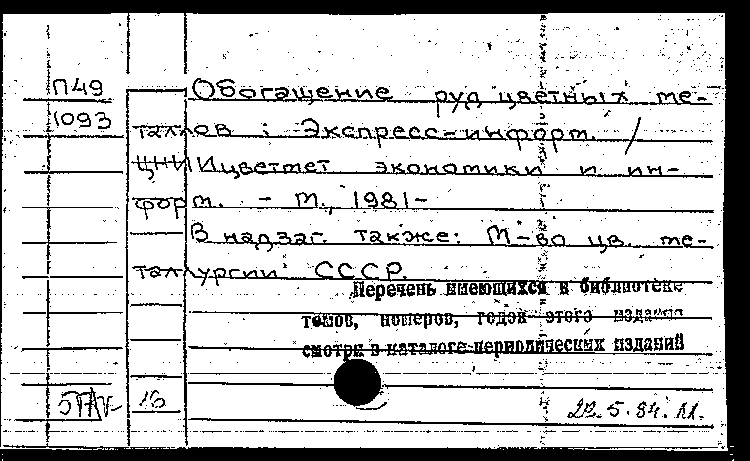 П49 Обогащение руд цветных ме-
1093 таллов : Экспресс-информ. /
ЦНИИцветмет экономики и ин-
форм. - М., 1981-
В надзаг. также: М-во цв. ме-
таллургии СССР.
Перечень имеющихся в библиотеке
томов, номеров, годов этого издания
смотри в каталоге периодических изданий
16 22.5.84.